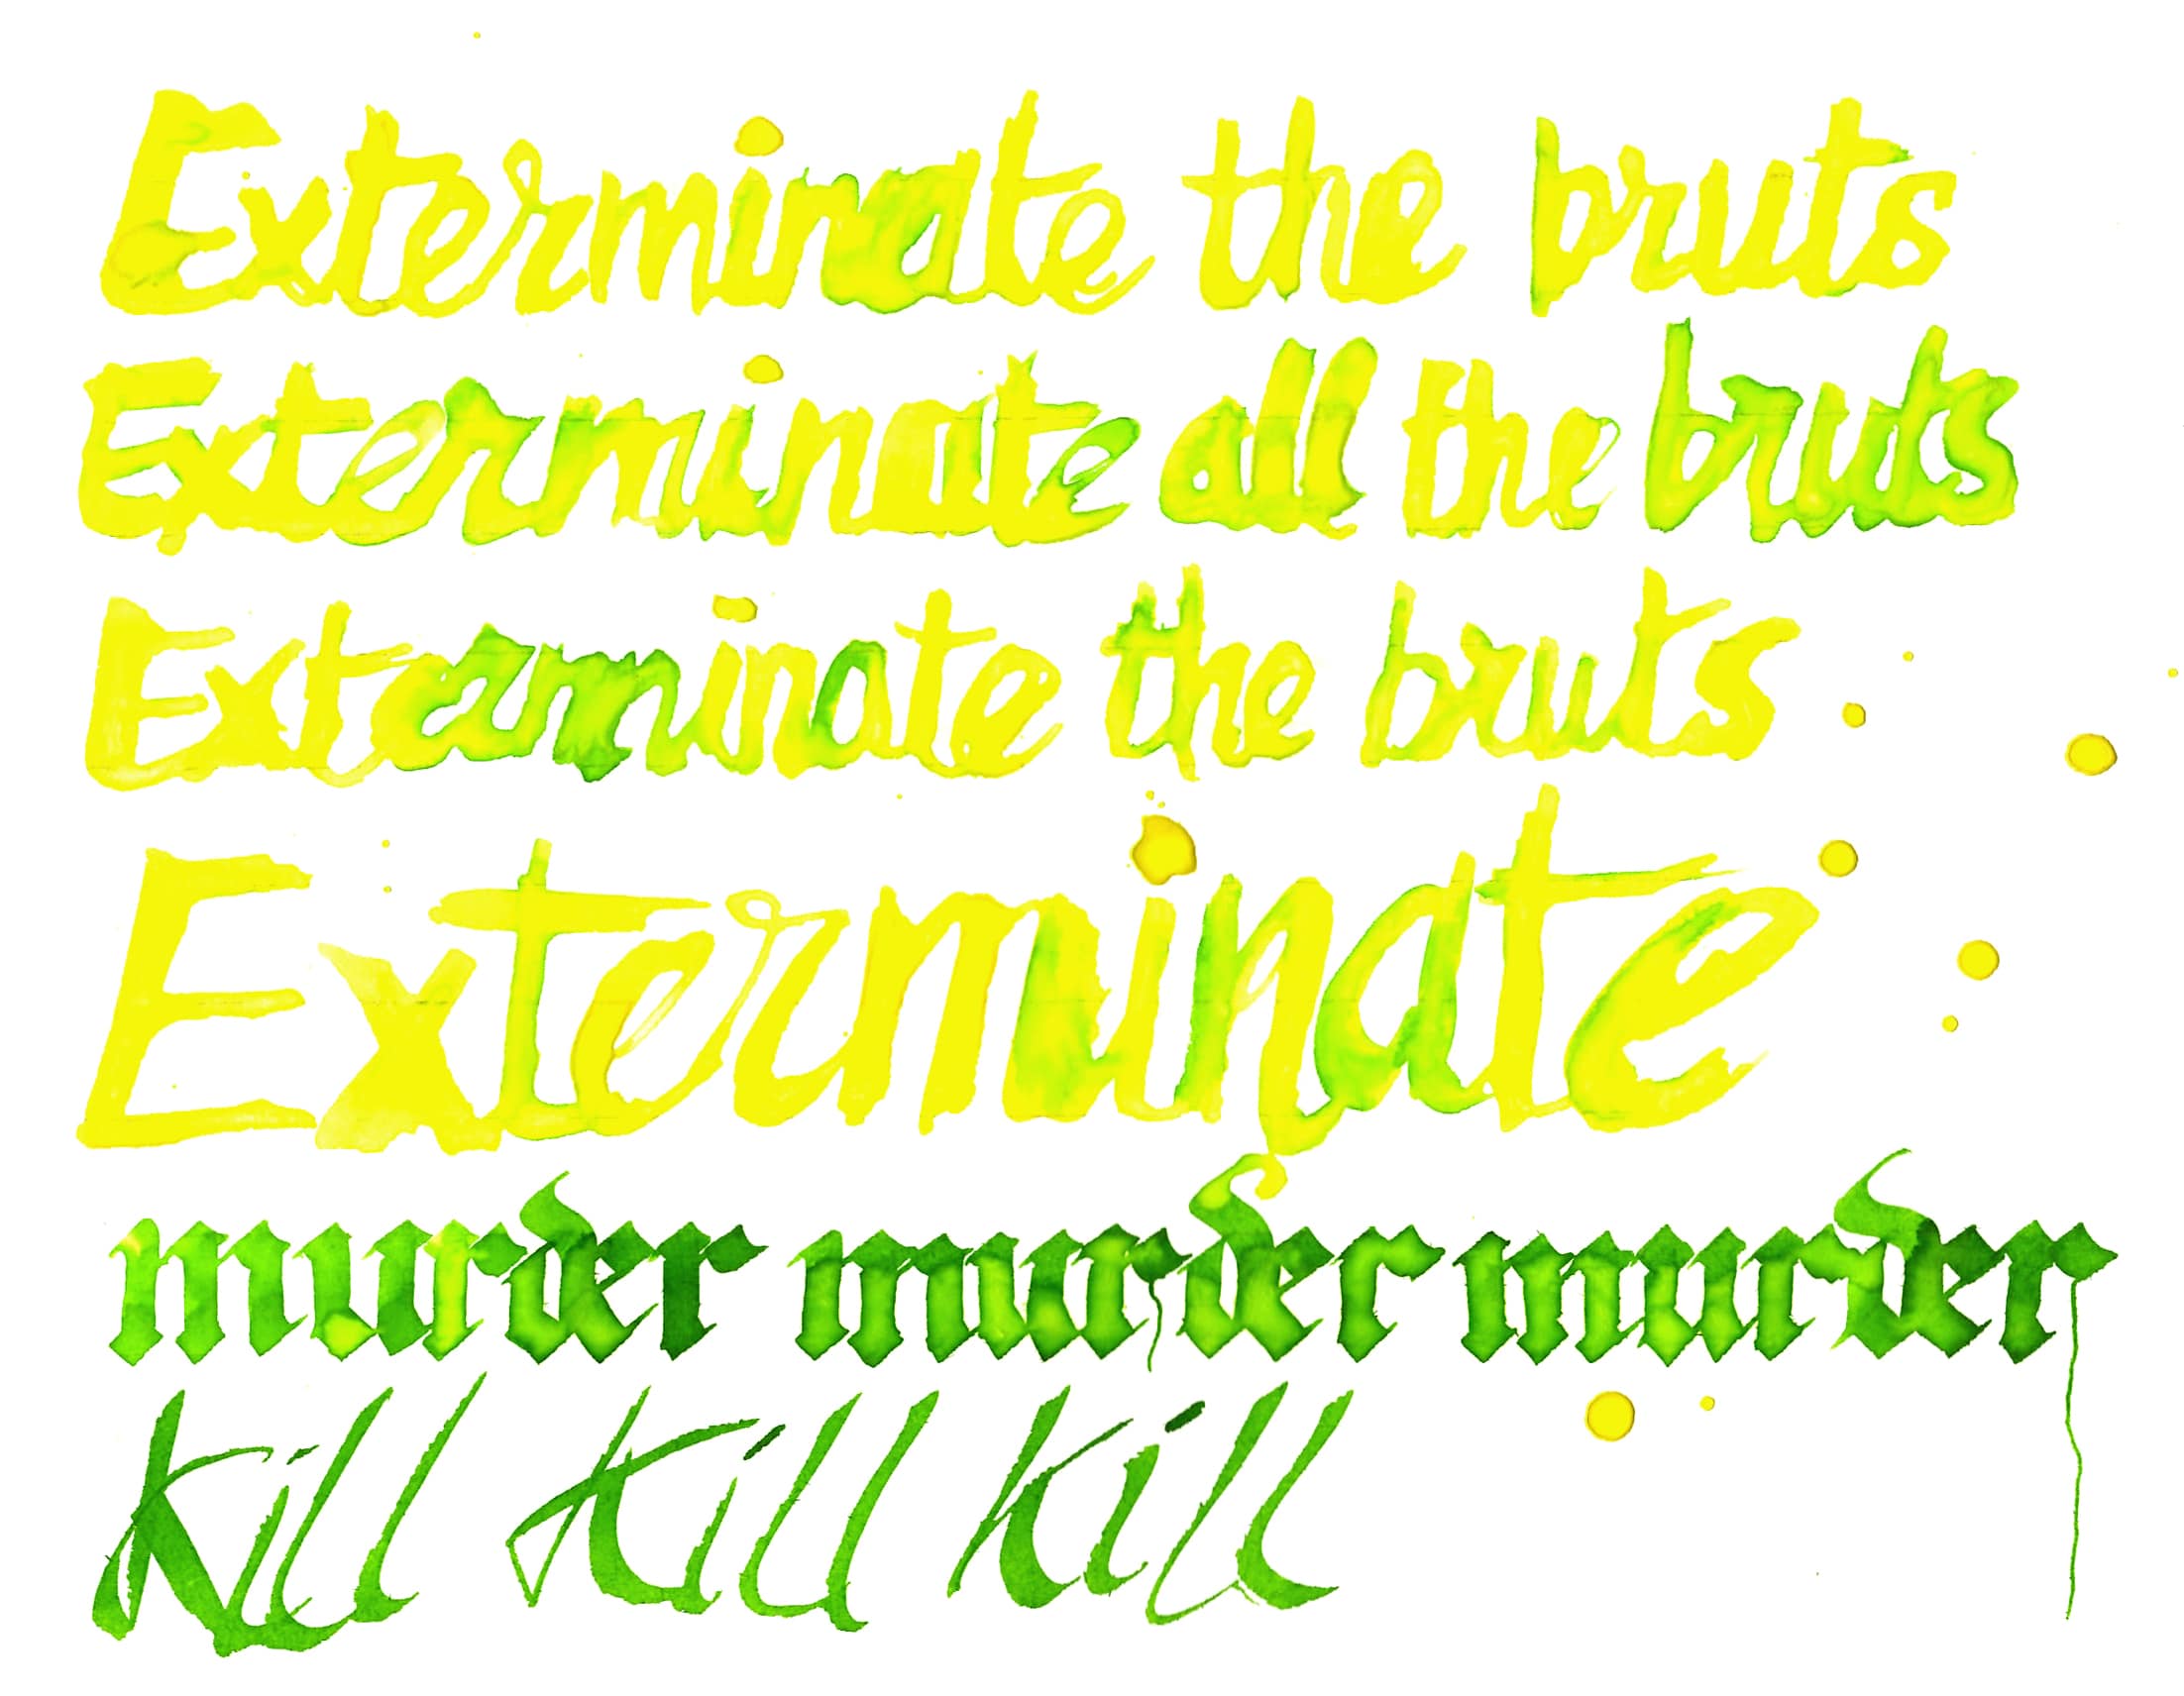 Exterminate the bruts
Exterminate all the bruts
Exterminate the bruts
Exterminate
murder murder murder
Kill Kill Kill